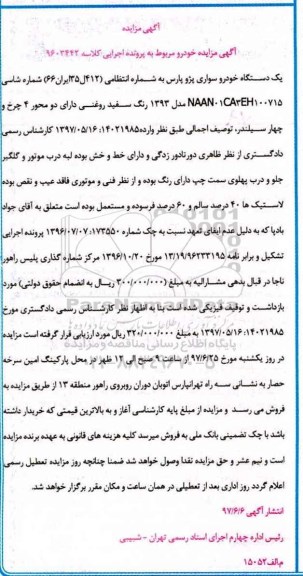 آگهی مزایده
آگهی مزایده خودرو مربوط به پرونده اجرایی کلاسه ۹۶۰۳۴۴۲
یک دستگاه خودرو سواری پژو پارس به شماره انتظامی (۴۱۲ل۳۵ایران۶۶) شماره شاسی
NAAN۰۱CA۳EH۱۰۰۷۱۵ مدل ۱۳۹۳ رنگ سفید روغنی دارای دو محور ۴ چرخ و
چهار سیلندر، توصیف اجمالی طبق نظر وارده۱۴۰۲۱۹۸۵: ۱۳۹۷/۰۵/۱۶ کارشناس رسمی
دادگستری از نظر ظاهری دورتادور زدگی و دارای خط و خش بوده لبه درب موتور و گلگیر
جلو و درب پهلوی سمت چپ دارای رنگ بوده و از نظر فنی و موتوری فاقد عیب و نقص بوده
لاستیک ها ۴۰ درصد سالم و ۶۰ درصد فرسوده و مستعمل بوده است متعلق به آقای جواد
بادپا که به دلیل عدم ایفای تعهد نسبت به چک شماره ۱۷۳۵۵۰: ۱۳۹۶/۰۷/۰۷ پرونده اجرایی
تشکیل و برابر نامه ۱۳/۱۹/۹۶۲۳۳۱۹۵ مورخ ۱۳۹۶/۱۰/۲۰ مرکز شماره گذاری پلیس راهور
ناجا در قبال بدهی مشارالیه به مبلغ (۳۰۰/۰۰۰/۰۰۰ ریال به انضمام حقوق دولتی) مورد
بازداشت و توقیف فیزیکی شده است بنا به اظهار نظر کارشناس رسمی دادگستری مورخ
۱۴۰۲۱۹۸۵: ۱۳۹۷/۰۵/۱۶ به مبلغ ۳۲۰/۰۰۰/۰۰۰ ریال مورد ارزیابی قرار گرفته است مزایده
در روز یکشنبه مورخ ۹۷/۶/۲۵ از ساعت ۹ صبح الی ۱۲ ظهر در محل پارکینگ امین سرخه
حصار به نشانی سه راه تهرانپارس اتوبان دوران روبروی راهور منطقه ۱۳ از طریق مزایده به
فروش می رسد و مزایده از مبلغ پایه کارشناسی آغاز و به بالاترین قیمتی که خریدار داشته
باشد با چک تضمینی بانک ملی به فروش میرسد کلیه هزینه های قانونی به عهده برنده مزایده
است و نیم عشر و حق مزایده نقدا وصول خواهد شد ضمنا چنانچه روز مزایده تعطیل رسمی
اعلام گردد روز اداری بعد از تعطیلی در همان ساعت و مکان مقرر برگزار خواهد شد.
انتشار آگهی ۹۷/۶/۶
رئیس اداره چهارم اجرای اسناد رسمی تهران - شبیبی
م‌الف۱۵۰۵۲